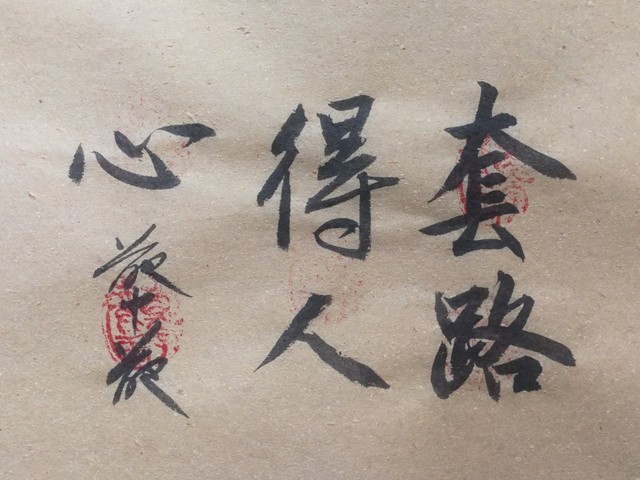 套路
得人
心